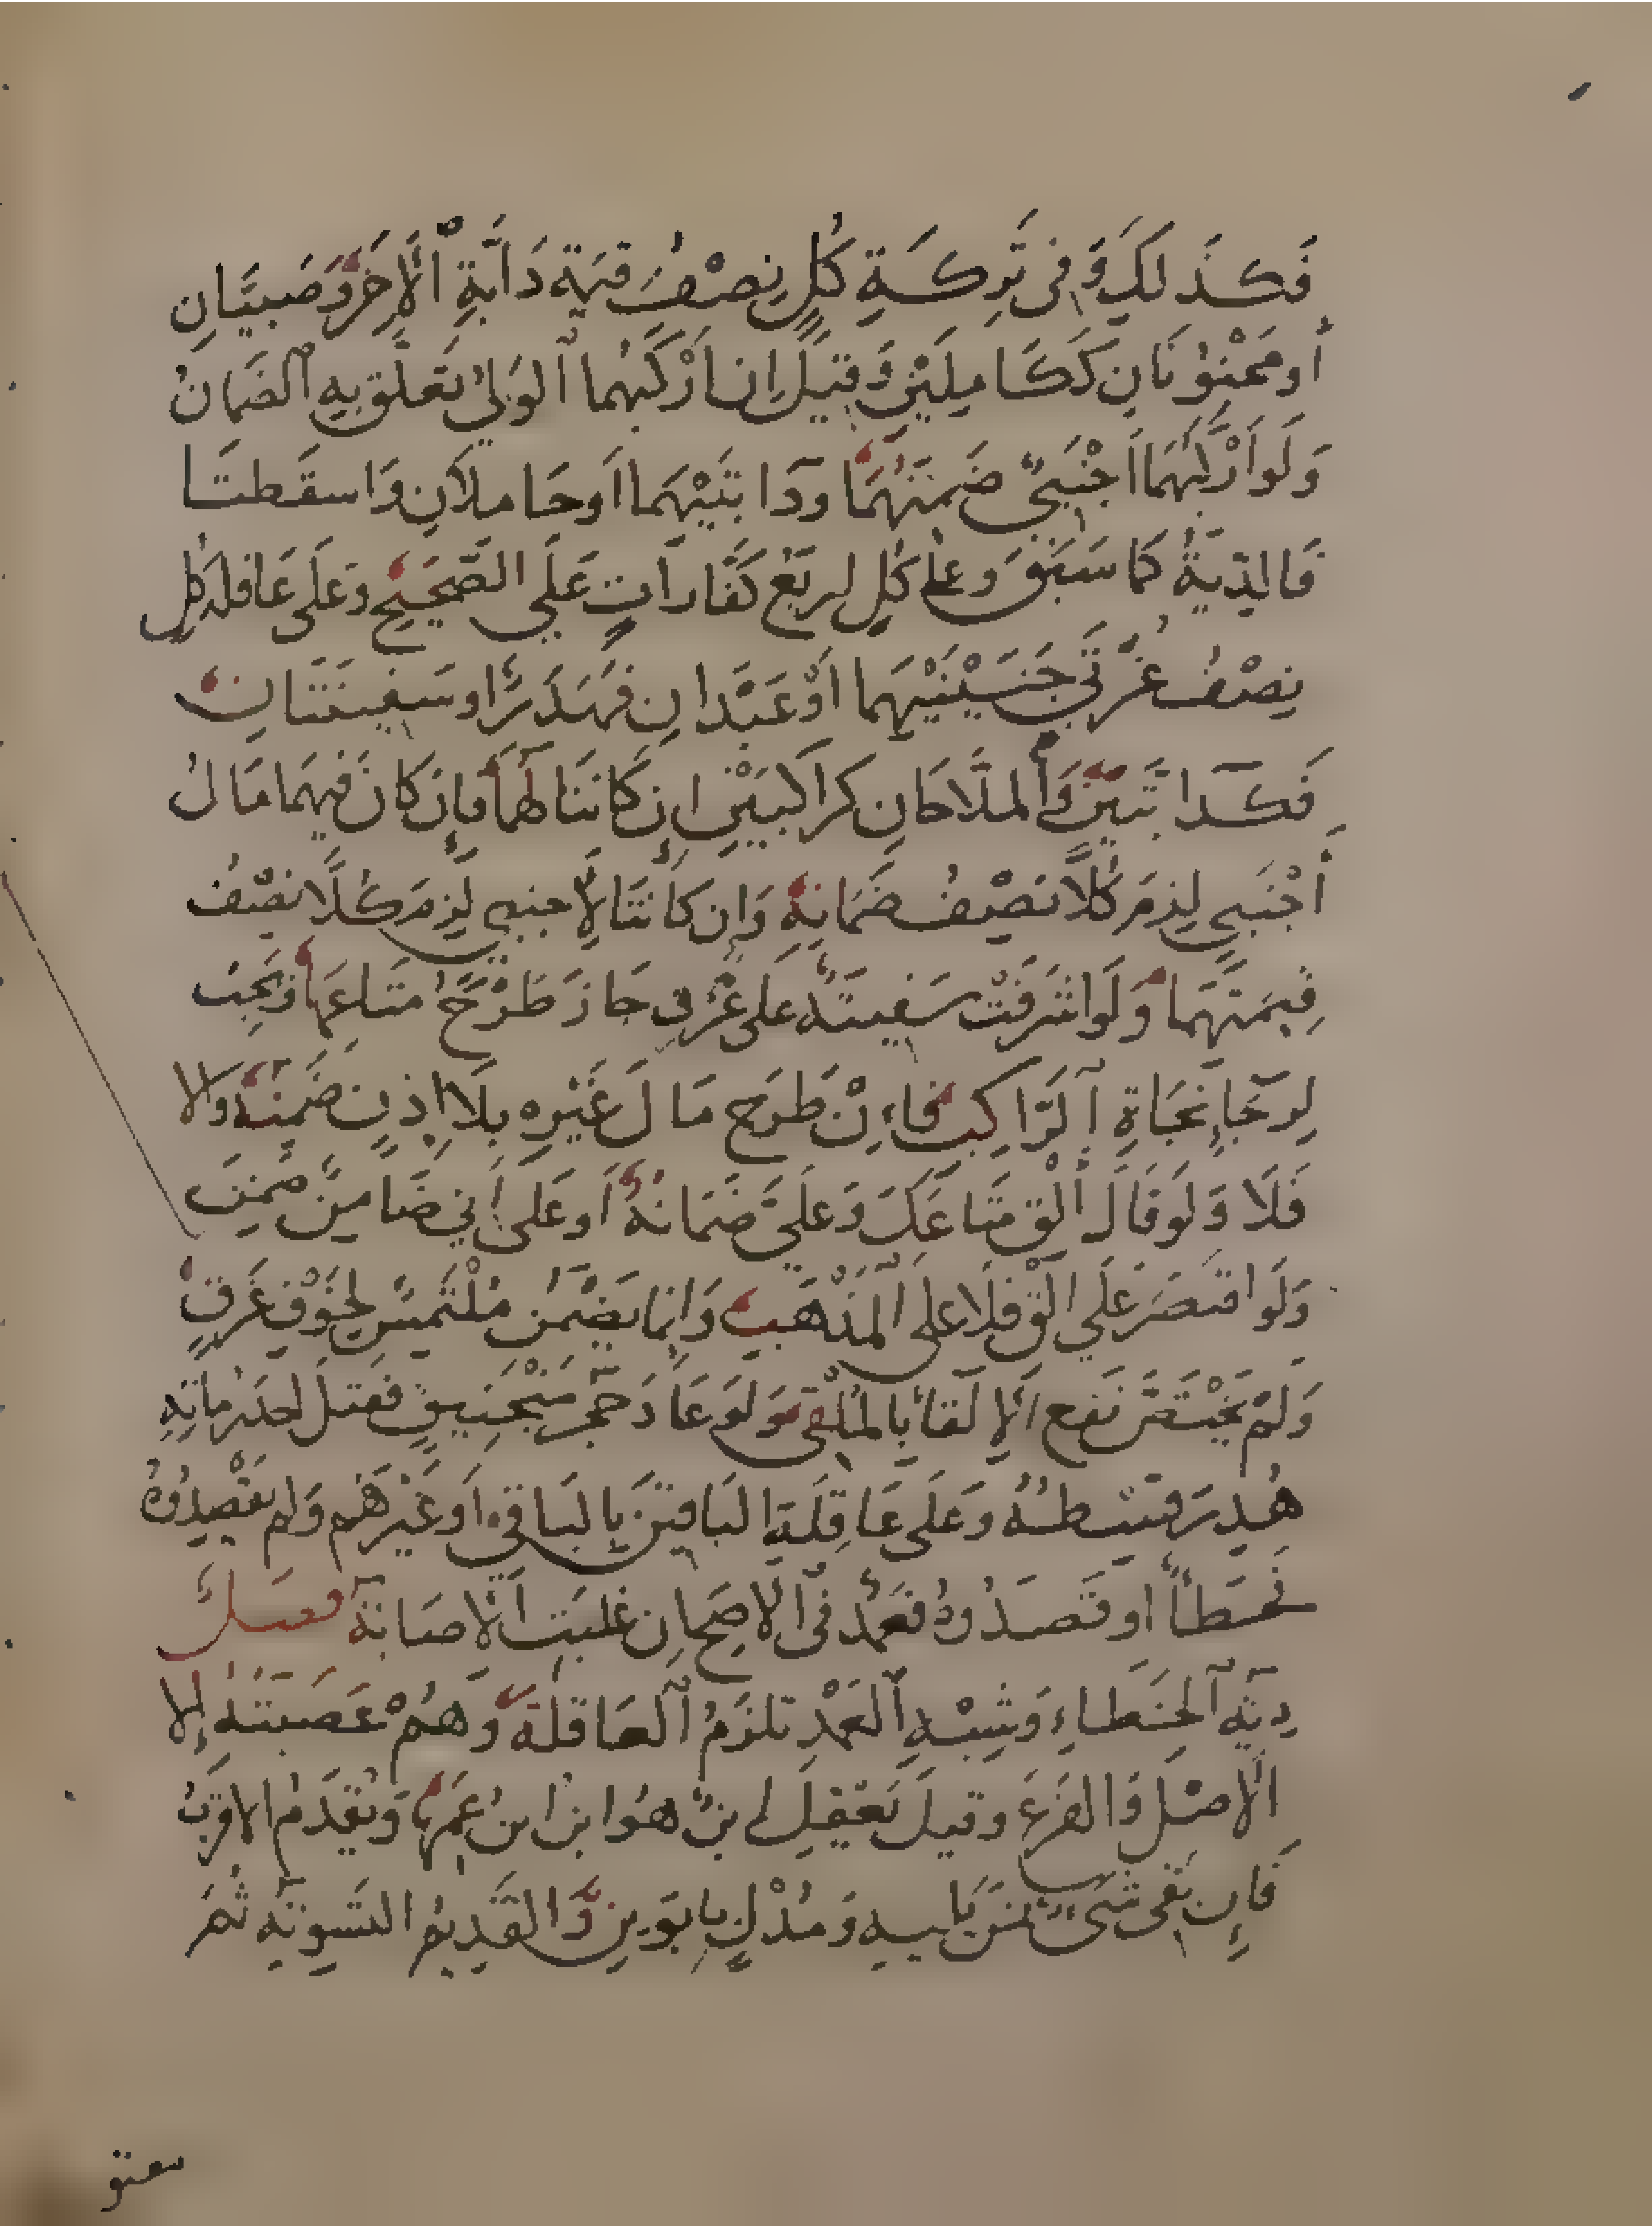 فَكَذَلِكَ وَفِي تَرِكَةِ كُلٍّ نِصْفُ قِيمَةِ دَابَّةِ ٱلْآخَرِ وَصَبِيَّانِ
أَو مَجْنُونَانِ كَكَامِلَيْنِ وَقِيلَ إِن اَرْكَبَهُما ٱلوَلِيُّ تَعَلَّقَ بِهِ ٱلضَمَانُ
وَلَو اَرْكَبَهُمَا اَجْنَبِيٌّ ضَمِنَهُمَا ودَابَّتَيْهِمَا اَو حَامِلَانِ وَاسقَطَتَا
فَالدِّيَةُ كَمَا سَبَقَ وعلى كُلٍ اربَعُ كَفَّارَاتٍ عَلَى الصَّحِيْحِ وَعَلَى عَاقلة كُلٍ
نِصْفُ غُرَّتَي جَنِيْنَيْهِمَا اَوْ عَبْدَانِ فَهَدَرٌ او سَفِينَتَانِ
فَكَدَابَّتَيْنِ وَٱلمَلَّاحَانِ كَرَاكِبَيْنِ اِن كَانَتَا لَهُمَا فَإِن كَانَ فِيهِمَا مَالُ
أَجْنَبِيٍ لَزِمَ كُلًا نِصْفُ ضَمَانِهِ وَإِن كَانَتَا لِأَجنبي لَزِمَ كُلًّا نِصْفُ
قِيمَتِهِمَا وَلَو اشرَفَتْ سَفِينَةٌ على غَرَقٍ جَازَ طَرْحُ مَتَاعِهَا وَيَجِبُ
لِرَجَاءِ نَجَاةِ ٱلرَّاكِبِ فَاءِنْ طَرَحَ مَالَ غَيْرِهِ بِلَا اِذنٍ ضَمِنَهُ وَالا
فَلَا وَلَو قَالَ أَلْقِ مَتَاعَكَ وَعَلَيَّ ضَمَانُهُ أَو عَلَى أَني ضَامِنٌ ضَمِنَ
وَلَو اقتَصَرَ عَلَى القِ فَلَا على ٱلمَذْهَبِ وَإِنما يَضْمَنُ مُلْتَمِسٌ لِخَوْفِ غَرَقٍ
وَلَمْ يَخْتَصَّ نَفعُ ٱلإِلقَاءِ بِالمُلْقِي وَلَو عَادَ حَجَرُ مَنْجَنِيقٍ فَقَتَلَ احَدَ رُمَاتِهِ
هُدِرَ قِسْطُهُ وَعَلى عَاقِلَةِ البَاقِينَ البَاقِي اَو غَيْرَهُم وَلم يَقْصِدُوهُ
فَخَطَأٌ او قَصَدُوهُ فَعَمْدٌ فِي ٱلاصَحِ اِن غلبَتِ ٱلاصَابَةُ فصل
دِيَةُ ٱلخَطَاءِ وَشِبْهِ ٱلعَمْدِ تلزَمُ ٱلعَاقلَةَ وَهُمْ عَصَبَتُهُ إِلا
الاصْلَ وَالفَرْعَ وقيلَ يَعْقِلُ ابنٌ هُوَ ابنُ ابنُ عَمِّهَا وَيُقَدَمُ الاقرَبُ
فَإِن بَقى شَىٌ فَمَن يَليهِ وَمُدْلٍ بِابوَينِ وَالقَدِيمُ التَسوِيَه ثُمَ
معتق